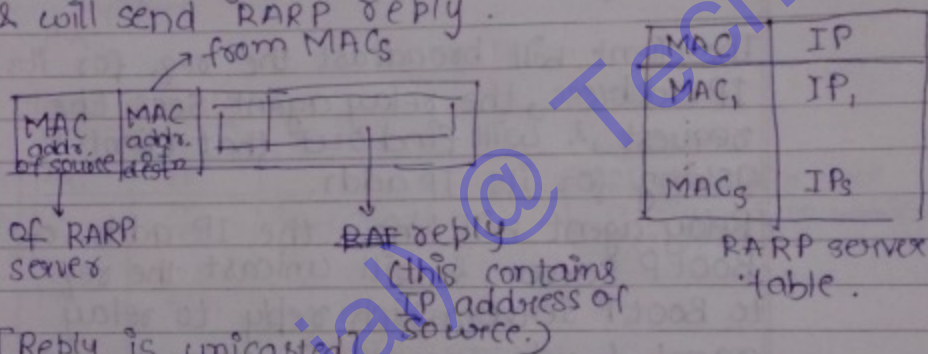 & will send RARP reply.
from MACs
MAC addr. of source
MAC addr. destn
of RARP server
RAF reply
(this contains
IP address of
source.)
MAC IP
MAC1 IP1
MACs IPs
RARP server
table.
[Reply is unicasted]
ial @ Tech